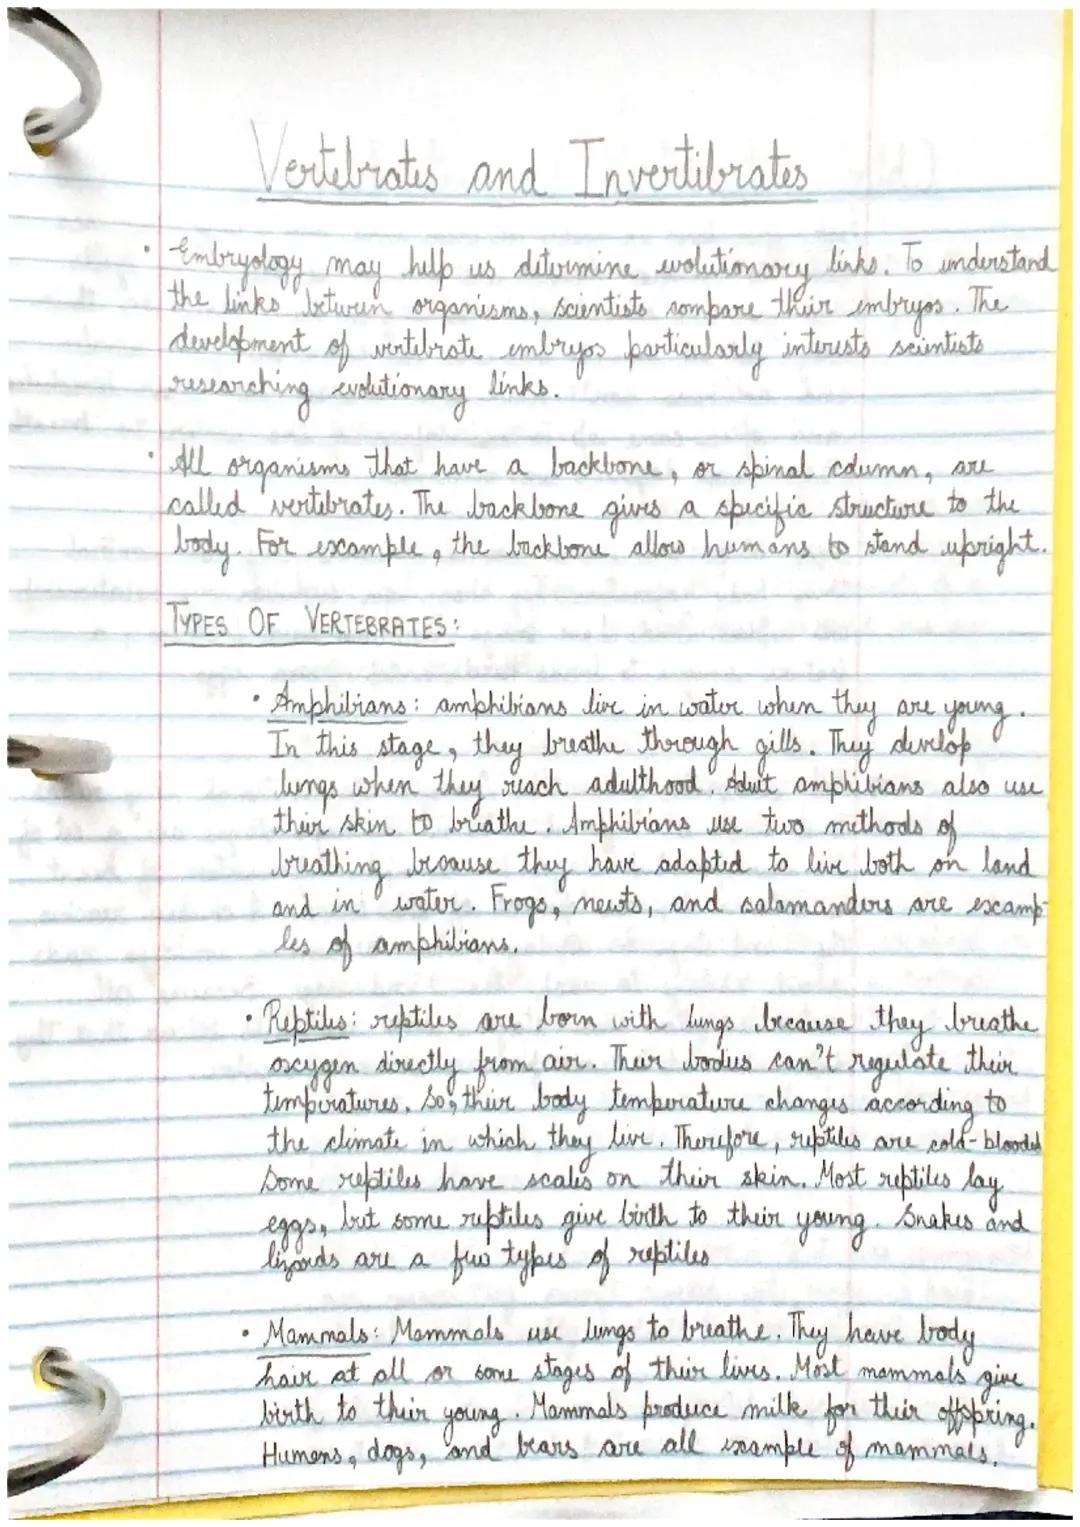 Vertebrates and Invertibrates
• Embryology may help us determine evolutionary links. To understand
the links between organisms, scientists compare their embryos. The
development of vertebrate embryos particularly interests scientists
researching evolutionary links.
• All organisms that have a backbone, or spinal column, are
called vertebrates. The backbone gives a specific structure to the
body. For example, the backbone allows humans to stand upright.
TYPES OF VERTEBRATES:
• Amphibians: amphibians live in water when they are young.
In this stage, they breathe through gills. They develop
lungs when they reach adulthood. Adult amphibians also use
their skin to breathe. Amphibians use two methods of
breathing because they have adapted to live both on land
and in water. Frogs, newts, and salamanders are examp-
les of amphibians.
• Reptiles: reptiles are born with lungs because they breathe
oxygen directly from air. Their bodies can't regulate their
temperatures. So, their body temperature changes according to
the climate in which they live. Therefore, reptiles are cold-blooded
Some reptiles have scales on their skin. Most reptiles lay
eggs, but some reptiles give birth to their young. Snakes and
lizards are a few types of reptiles
• Mammals: Mammals use lungs to breathe. They have body
hair at all or some stages of their lives. Most mammals give
birth to their young. Mammals produce milk for their offspring.
Humans, dogs, and bears are all example of mammals.